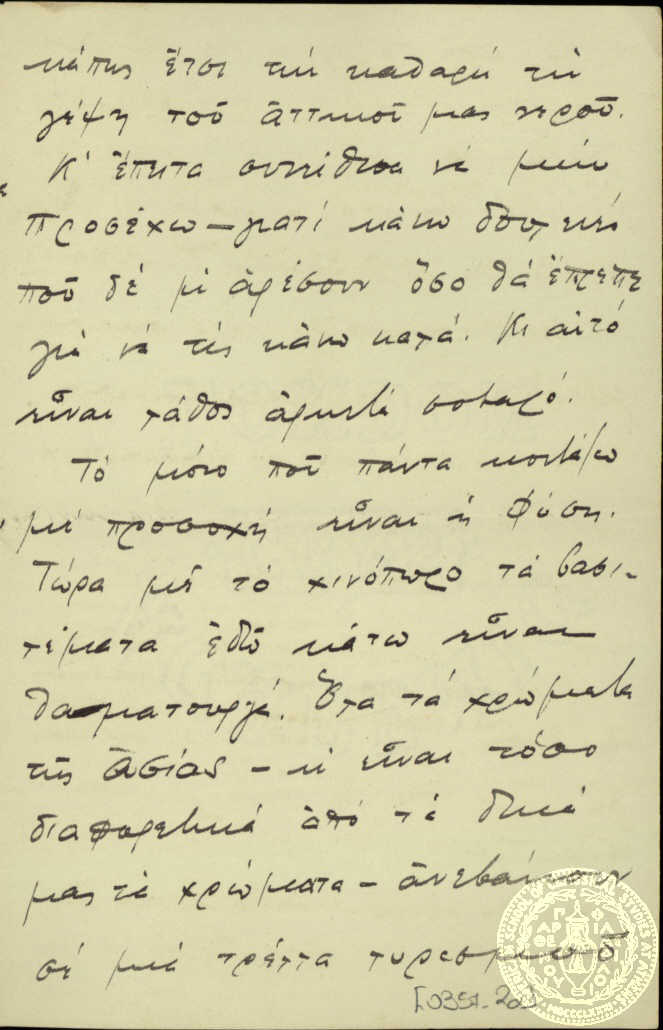 κάπως ἔτσι τὴν καθαρὴ τὴ
γέψη τοῦ ἀττικοῦ μας νεροῦ.
Κ' ἔπειτα συνήθισα νὰ μὴν
προσέχω – γιατί κάνω δουλειές
ποῦ δέ μ' ἀρέσουν ὅσο θὰ ἔπρεπε
γιὰ νὰ τὶς κάνω καλά. Κι αὐτό
εἶναι λάθος ἀρκετὰ σοβαρό.
Τὸ μόνο ποῦ πάντα κοιτάζω
μὲ προσοχή εἶναι ἡ φύση.
Τώρα μὲ τὸ χινόπωρο τὰ βασι-
λέματα ἐδῶ κάτω εἶναι
θαματουργά. Ὅλα τὰ χρώματα
τῆς Ἀσίας – κι εἶναι τόσο
διαφορετικά ἀπὸ τὰ δικά
μας τὰ χρώματα – ἀνεβαίνουν
σὲ μιὰ τρέλλα
[0357-20]